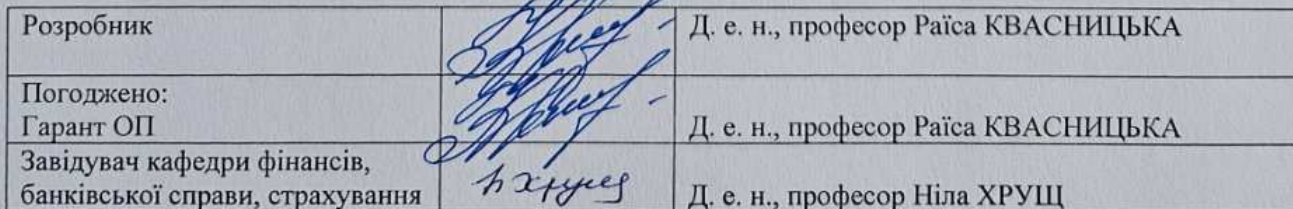 Розробник Д. е. н., професор Раїса КВАСНИЦЬКА
Погоджено:
Гарант ОП Д. е. н., професор Раїса КВАСНИЦЬКА
Завідувач кафедри фінансів,
банківської справи, страхування Д. е. н., професор Ніла ХРУЩ